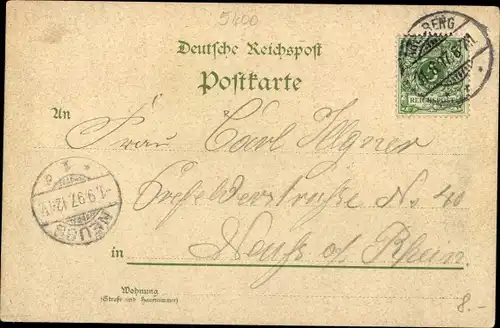 5600
Deutsche Reichspost
Postkarte
BERG
1.9.97
REICHSPOST
An
Frau Carl
Crefelderstraße No 40
1.9.97.12
NEUSS
in Neuß a/ Rhein
Wohnung
(Straße und Hausnummer)
8.-